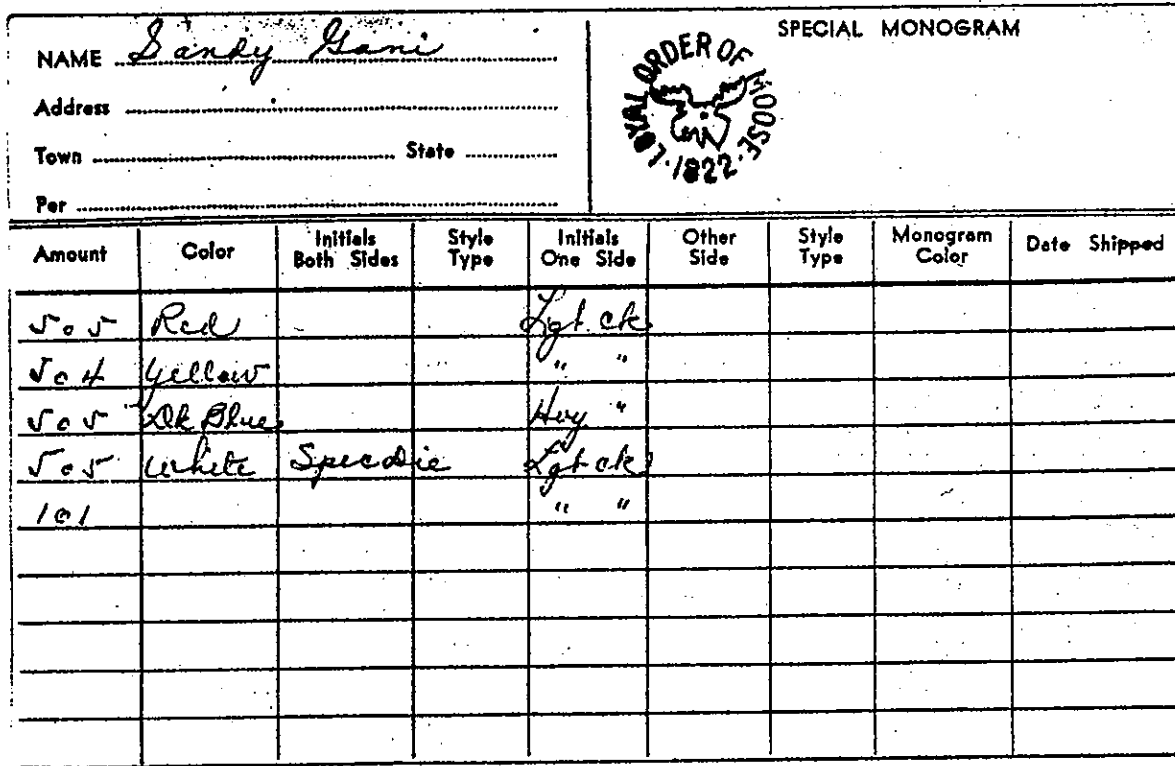 NAME Sandy Gani
Address
Town State
Per
SPECIAL MONOGRAM
LOYAL ORDER OF MOOSE
·1822·
Amount Color Initials Both Sides Style Type Initials One Side Other Side Style Type Monogram Color Date Shipped
505 Red Lgt ck
504 Yellow " "
505 Dk Blue Hvy "
505 White Spec die Lgt ck
101 " "